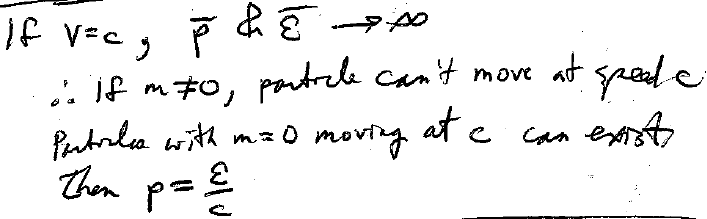 If v=c, p̄ & ε̄ → ∞
∴ If m≠0, particle can't move at speed c
Particles with m=0 moving at c can exist
Then p = ε/c